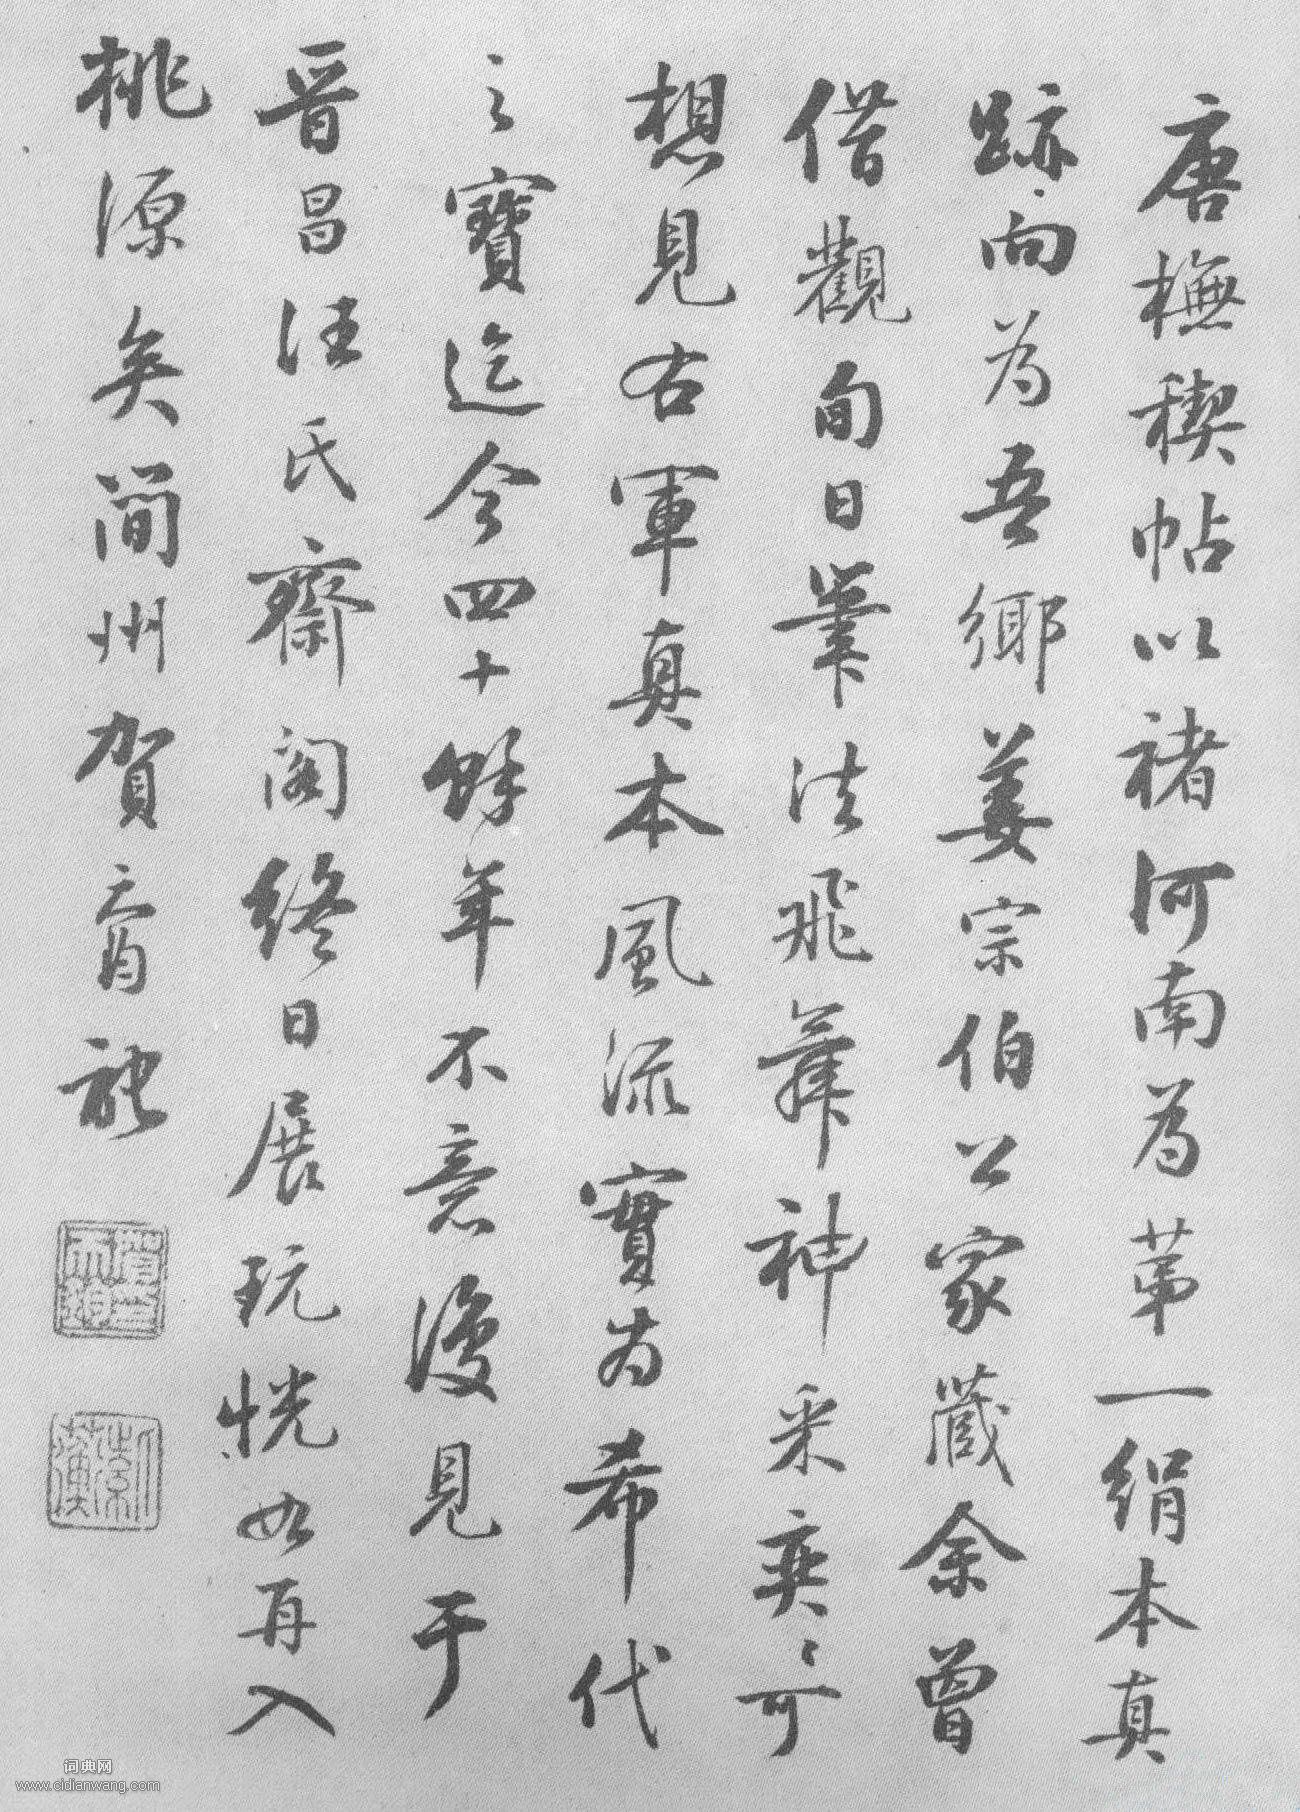 唐橅禊帖以褚河南為苐一絹本真
跡向為吾鄉姜宗伯公家藏余曾
借觀旬日筆法飛舞神采奕奕可
想見右軍真本風流實为希代
之寶迄今四十餘年不意復見于
晉昌汪氏齋閣終日展玩恍如再入
桃源矣簡州賀
词典网
www.cidianwang.com